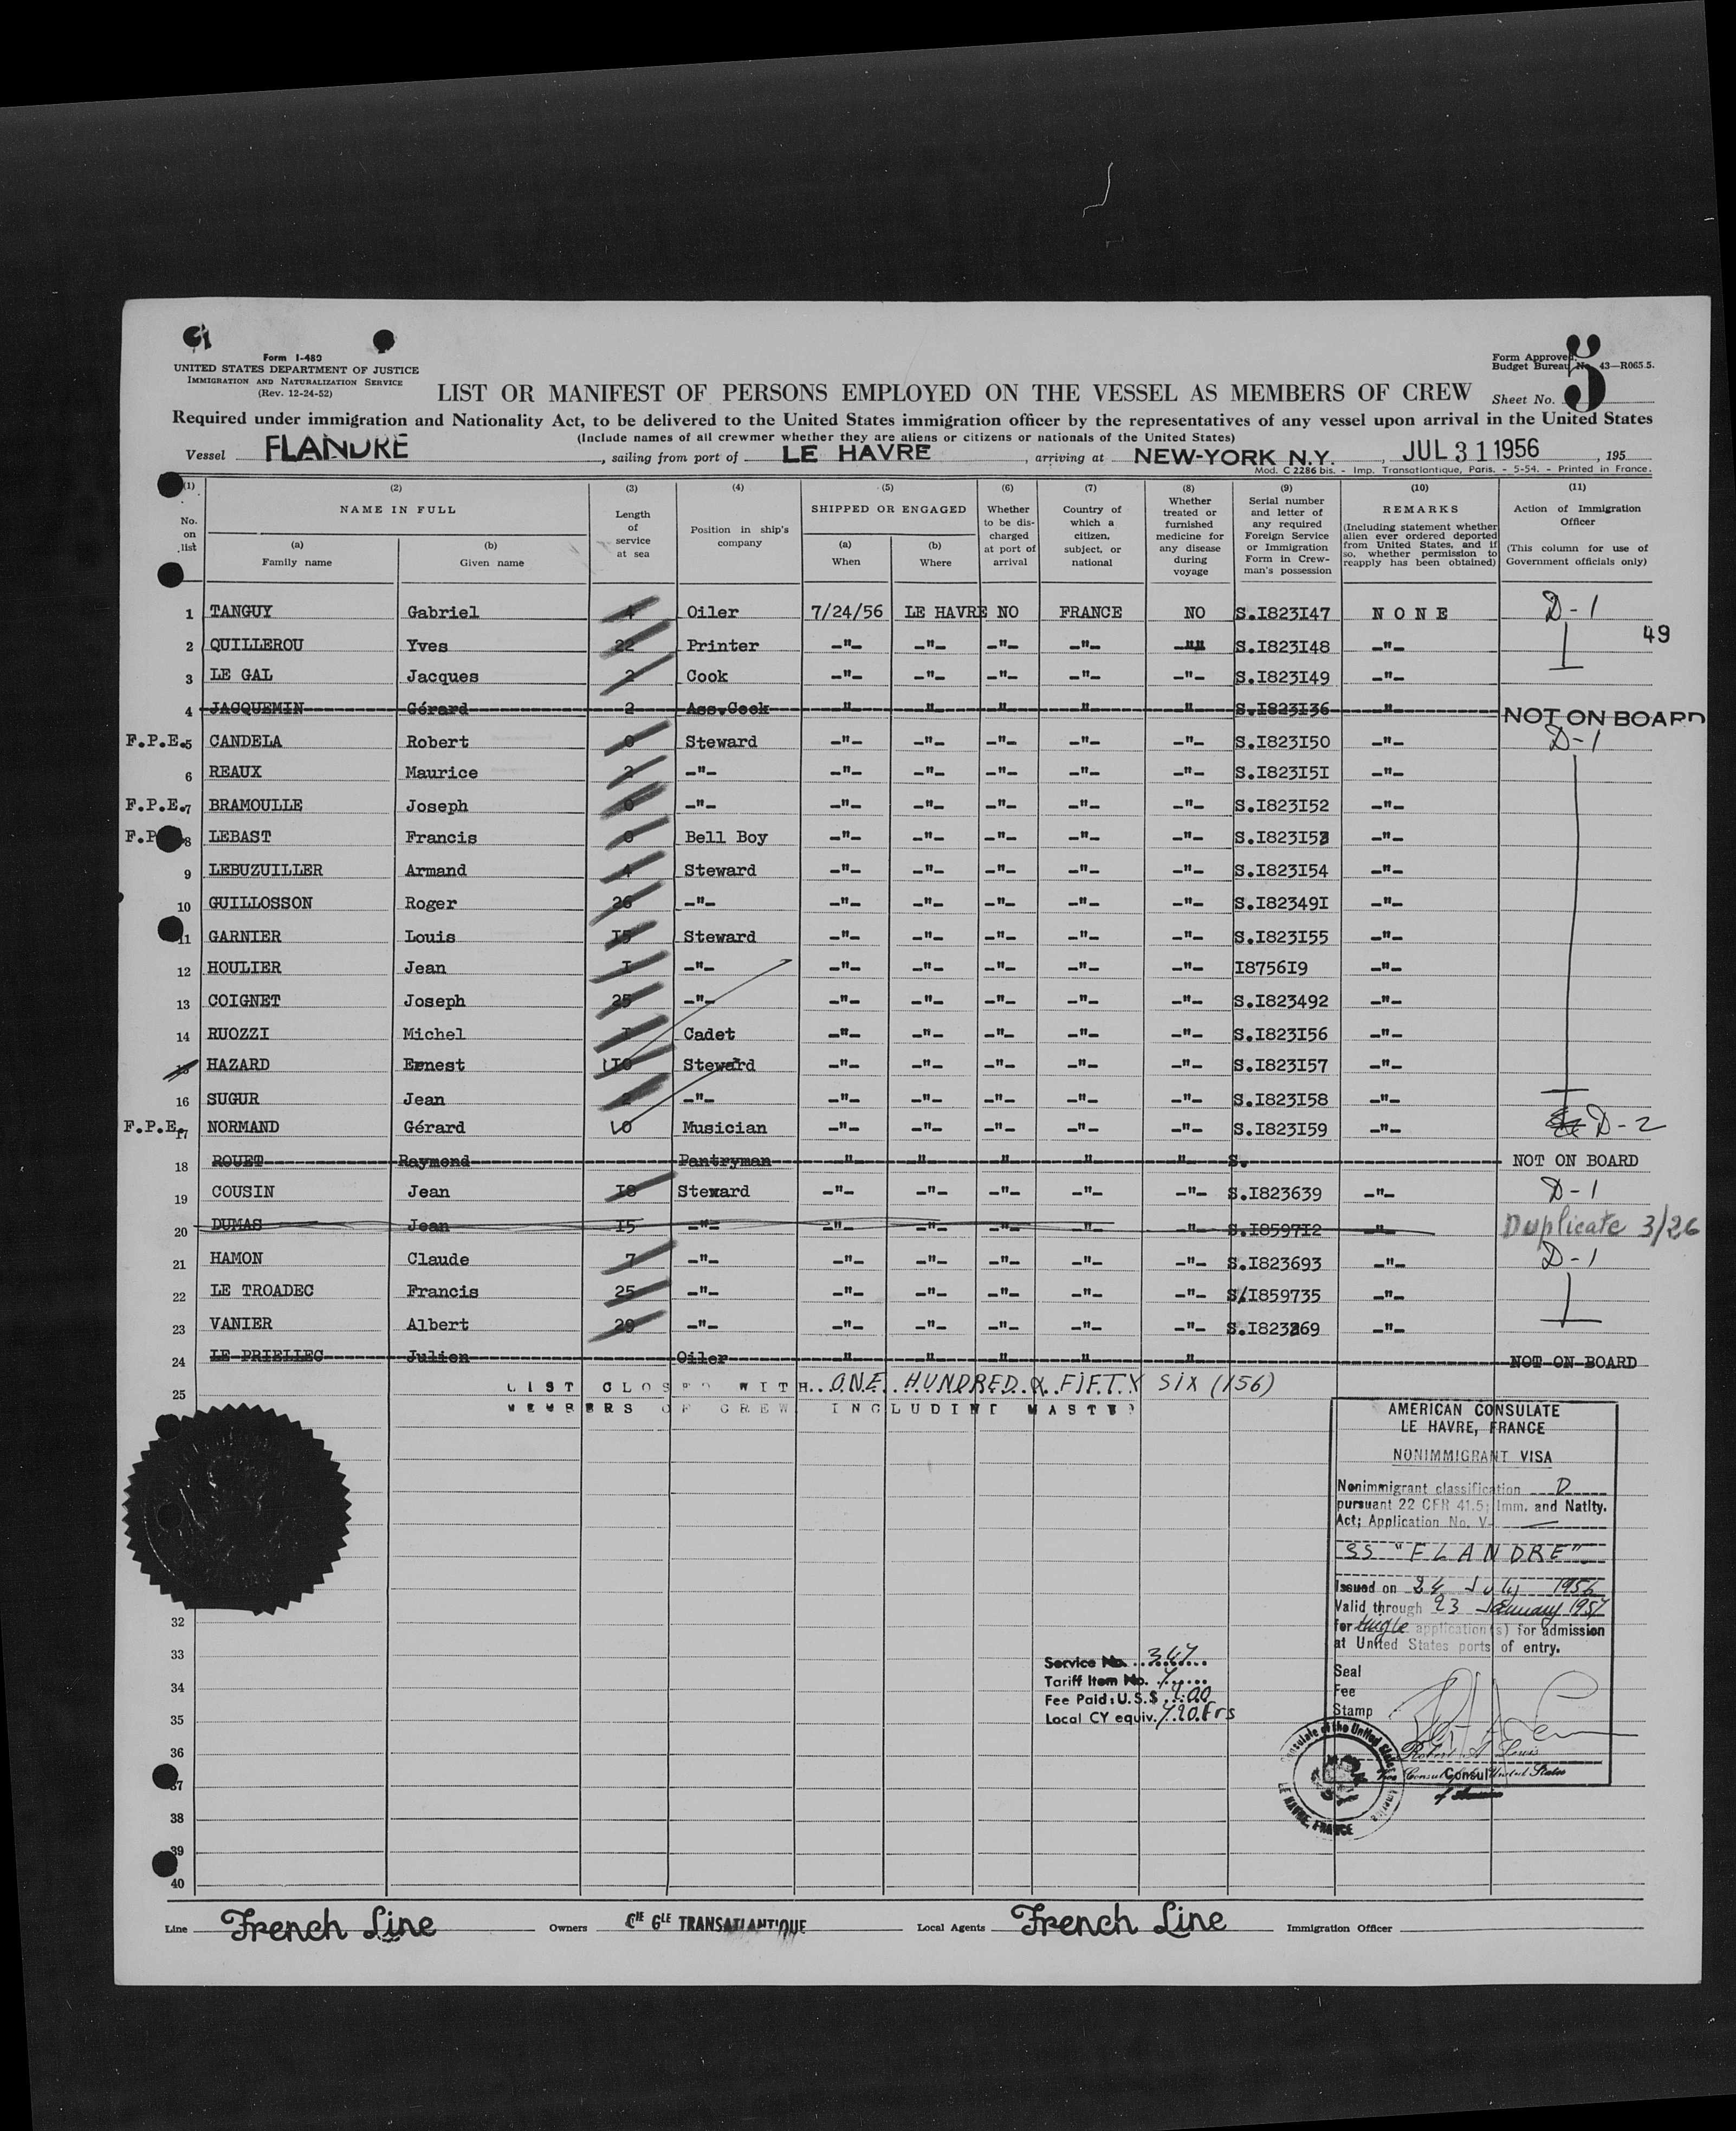 Form I-480
UNITED STATES DEPARTMENT OF JUSTICE
IMMIGRATION AND NATURALIZATION SERVICE
(Rev. 12-24-52)
Form Approved.
Budget Bureau No. 43—R065.5.
LIST OR MANIFEST OF PERSONS EMPLOYED ON THE VESSEL AS MEMBERS OF CREW
Sheet No. 5
Required under immigration and Nationality Act, to be delivered to the United States immigration officer by the representatives of any vessel upon arrival in the United States
(Include names of all crewmer whether they are aliens or citizens or nationals of the United States)
Vessel FLANDRE, sailing from port of LE HAVRE, arriving at NEW-YORK N.Y., JUL 31 1956, 195
Mod. C 2286 bis. - Imp. Transatlantique, Paris. - 5-54. - Printed in France.
(1) (2) (3) (4) (5) (6) (7) (8) (9) (10) (11)
No. on list
NAME IN FULL
(a) Family name
(b) Given name
Length of service at sea
Position in ship's company
SHIPPED OR ENGAGED
(a) When
(b) Where
Whether to be discharged at port of arrival
Country of which a citizen, subject, or national
Whether treated or furnished medicine for any disease during voyage
Serial number and letter of any required Foreign Service or Immigration Form in Crewman's possession
REMARKS
(Including statement whether alien ever ordered deported from United States, and if so, whether permission to reapply has been obtained)
Action of Immigration Officer
(This column for use of Government officials only)
1 TANGUY Gabriel 4 Oiler 7/24/56 LE HAVRE NO FRANCE NO S.I823I47 N O N E D-1
49
2 QUILLEROU Yves 22 Printer -"- -"- -"- -"- -"- S.I823I48 -"-
3 LE GAL Jacques 2 Cook -"- -"- -"- -"- -"- S.I823I49 -"-
4 JACQUEMIN Gérard 2 Ass.Cook " " " " " S.I823I36 " NOT ON BOARD
F.P.E. 5 CANDELA Robert 0 Steward -"- -"- -"- -"- -"- S.I823I50 -"- D-1
6 REAUX Maurice 2 -"- -"- -"- -"- -"- -"- S.I823I5I -"-
F.P.E. 7 BRAMOULLE Joseph 0 -"- -"- -"- -"- -"- -"- S.I823I52 -"-
F.P 8 LEBAST Francis 0 Bell Boy -"- -"- -"- -"- -"- S.I823I53 -"-
9 LEBUZUILLER Armand 4 Steward -"- -"- -"- -"- -"- S.I823I54 -"-
10 GUILLOSSON Roger 26 -"- -"- -"- -"- -"- -"- S.I82349I -"-
11 GARNIER Louis I5 Steward -"- -"- -"- -"- -"- S.I823I55 -"-
12 HOULIER Jean I -"- -"- -"- -"- -"- -"- I8756I9 -"-
13 COIGNET Joseph 25 -"- -"- -"- -"- -"- -"- S.I823492 -"-
14 RUOZZI Michel I Cadet -"- -"- -"- -"- -"- S.I823I56 -"-
15 HAZARD Ernest I0 Steward -"- -"- -"- -"- -"- S.I823I57 -"-
16 SUGUR Jean 2 -"- -"- -"- -"- -"- -"- S.I823I58 -"-
F.P.E. 17 NORMAND Gérard 0 Musician -"- -"- -"- -"- -"- S.I823I59 -"- D-2
18 ROUET Raymond Pantryman " " " " " S. NOT ON BOARD
19 COUSIN Jean I8 Steward -"- -"- -"- -"- -"- S.I823639 -"- D-1
20 DUMAS Jean I5 -"- -"- -"- -"- -"- -"- S.I8597I2 -"- Duplicate 3/26
21 HAMON Claude 7 -"- -"- -"- -"- -"- -"- S.I823693 -"- D-1
22 LE TROADEC Francis 25 -"- -"- -"- -"- -"- -"- S/I859735 -"-
23 VANIER Albert 29 -"- -"- -"- -"- -"- -"- S.I823269 -"-
24 LE PRIELLEC Julien Oiler " " " " " NOT ON BOARD
25 LIST CLOSED WITH ONE HUNDRED & FIFTY SIX (156)
MEMBERS OF CREW INCLUDING MASTER
AMERICAN CONSULATE
LE HAVRE, FRANCE
NONIMMIGRANT VISA
Nonimmigrant classification D
pursuant 22 CFR 41.5; Imm. and Natlty.
Act; Application No. V-
SS "FLANDRE"
Issued on 24 July 1956
Valid through 23 January 1957
for single application(s) for admission
at United States ports of entry.
Seal
Fee
Stamp
Robert A Lewis
Vice Consul of the United States
Consul
of America
32
33
34
35
36
37
38
39
40
Service No. 347
Tariff Item No. 7
Fee Paid: U.S.$
Local CY equiv. Frs
Consulate of the United States America
LE HAVRE, FRANCE
Line French Line Owners CIE GLE TRANSATLANTIQUE Local Agents French Line Immigration Officer